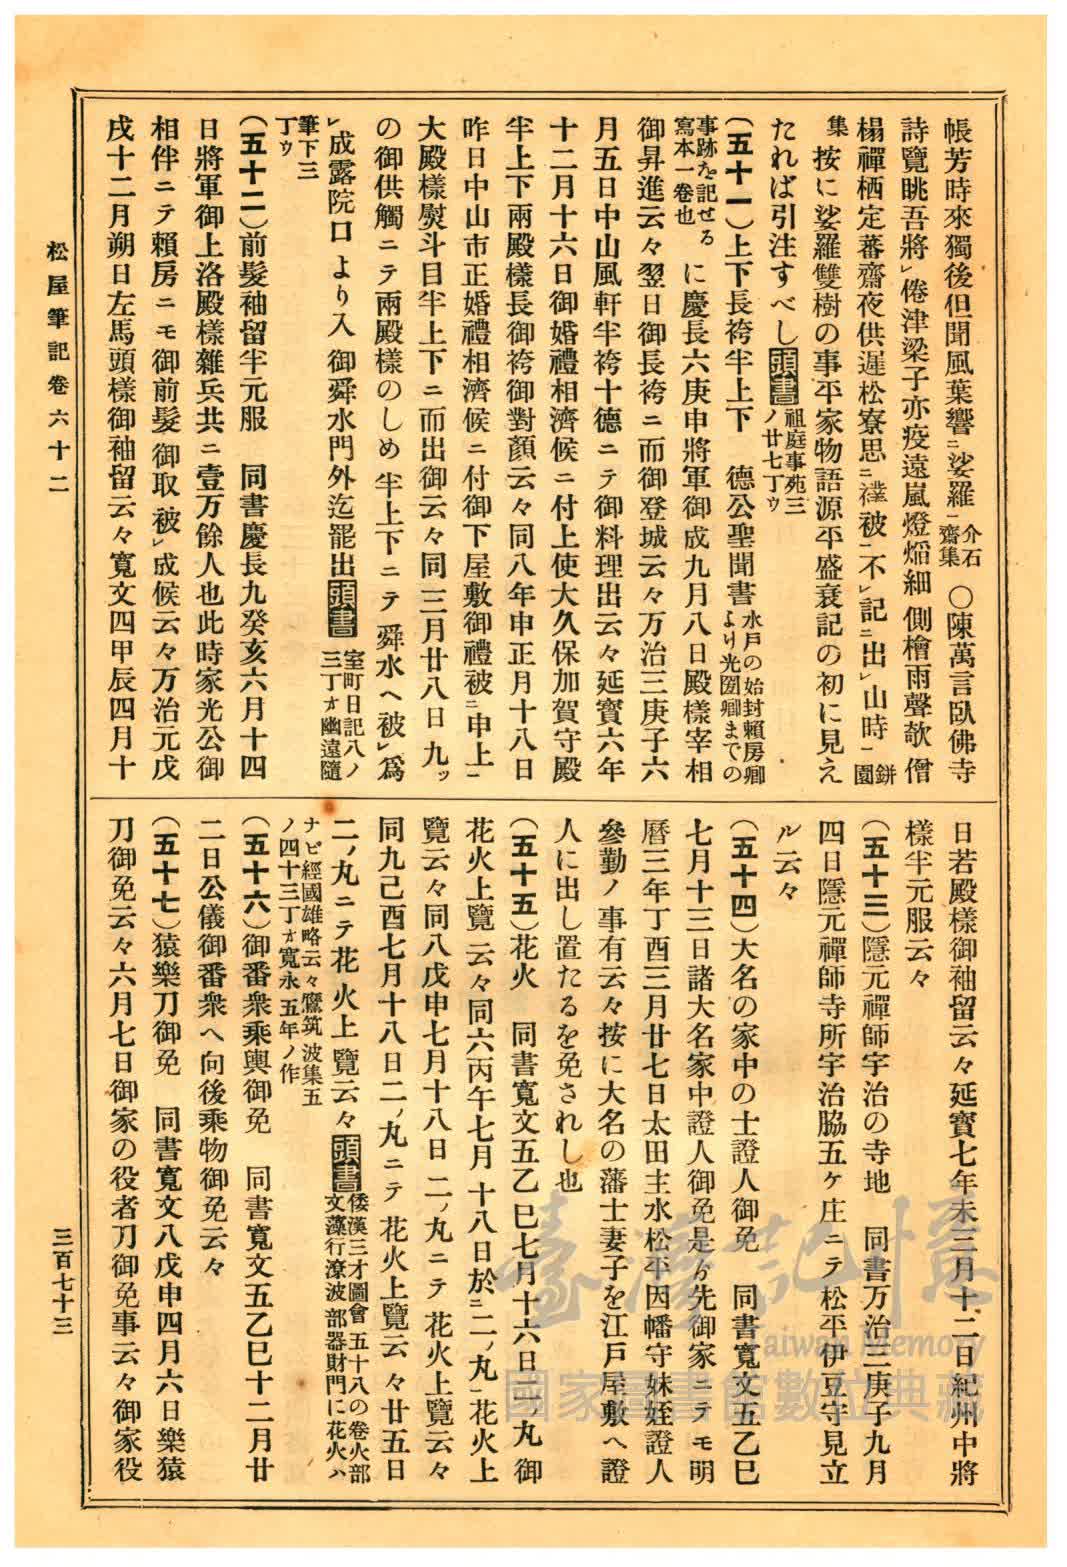 帳芳時來獨後但聞風葉響ニ娑羅一 介石齋集 〇陳萬言臥佛寺
詩覽眺吾將レ倦津梁子亦疫遠嵐燈焰細側檜雨聲欹僧
榻禪栖定蕃齋夜供遲松寮思ニ襆被ニ不レ記ニ出レ山時一 餠園
集 按に娑羅雙樹の事平家物語源平盛衰記の初に見え
たれば引注すべし 頭書 祖庭事苑三ノ廿七丁ウ
(五十一)上下長袴半上下 德公聖聞書 水戸の始封賴房卿より光圀卿までの
事跡を記せる寫本一卷也 に慶長六庚申將軍御成九月八日殿樣宰相
御昇進云々翌日御長袴ニ而御登城云々万治三庚子六
月五日中山風軒半袴十德ニテ御料理出云々延寶六年
十二月十六日御婚禮相濟候ニ付上使大久保加賀守殿
半上下兩殿樣長御袴御對顏云々同八年申正月十八日
昨日中山市正婚禮相濟候ニ付御下屋敷御禮被ニ申上一
大殿樣熨斗目半上下ニ而出御云々同三月廿八日九ッ
の御供觸ニテ兩殿樣のしめ半上下ニテ舜水ヘ被レ爲
レ成露院口より入御舜水門外迄罷出 頭書 室町日記八ノ三丁オ幽遠隨
筆下三丁ウ
(五十二)前髮袖留半元服 同書慶長九癸亥六月十四
日將軍御上洛殿樣雜兵共ニ壹万餘人也此時家光公御
相伴ニテ賴房ニモ御前髮御取被レ成候云々万治元戊
戌十二月朔日左馬頭樣御袖留云々寬文四甲辰四月十
日若殿樣御袖留云々延寶七年未三月十二日紀州中將
樣半元服云々
(五十三)隱元禪師宇治の寺地 同書万治三庚子九月
四日隱元禪師寺所宇治脇五ケ庄ニテ松平伊豆守見立
ル云々
(五十四)大名の家中の士證人御免 同書寬文五乙巳
七月十三日諸大名家中證人御免是ゟ先御家ニテモ明
曆三年丁酉三月廿七日太田主水松平因幡守妹姪證人
參勤ノ事有云々按に大名の藩士妻子を江戸屋敷ヘ證
人に出し置たるを免されし也
(五十五)花火 同書寬文五乙巳七月十六日二ノ丸御
花火上覽云々同六丙午七月十八日於ニ二ノ丸一花火上
覽云々同八戊申七月十八日二ノ丸ニテ花火上覽云々
同九己酉七月十八日二ノ丸ニテ花火上覽云々廿五日
二ノ丸ニテ花火上覽云々 頭書 倭漢三才圖會五十八の卷火部文藻行潦波部器財門に花火ハ
ナビ經國雄略云々鷹筑波集五ノ四十三丁オ寬永五年ノ作
(五十六)御番衆乘輿御免 同書寬文五乙巳十二月廿
二日公儀御番衆ヘ向後乘物御免云々
(五十七)猿樂刀御免 同書寬文八戊申四月六日樂猿
刀御免云々六月七日御家の役者刀御免事云々御家役
松屋筆記卷六十二
三百七十三
臺灣記憶
Taiwan Memory
國家圖書館數位典藏